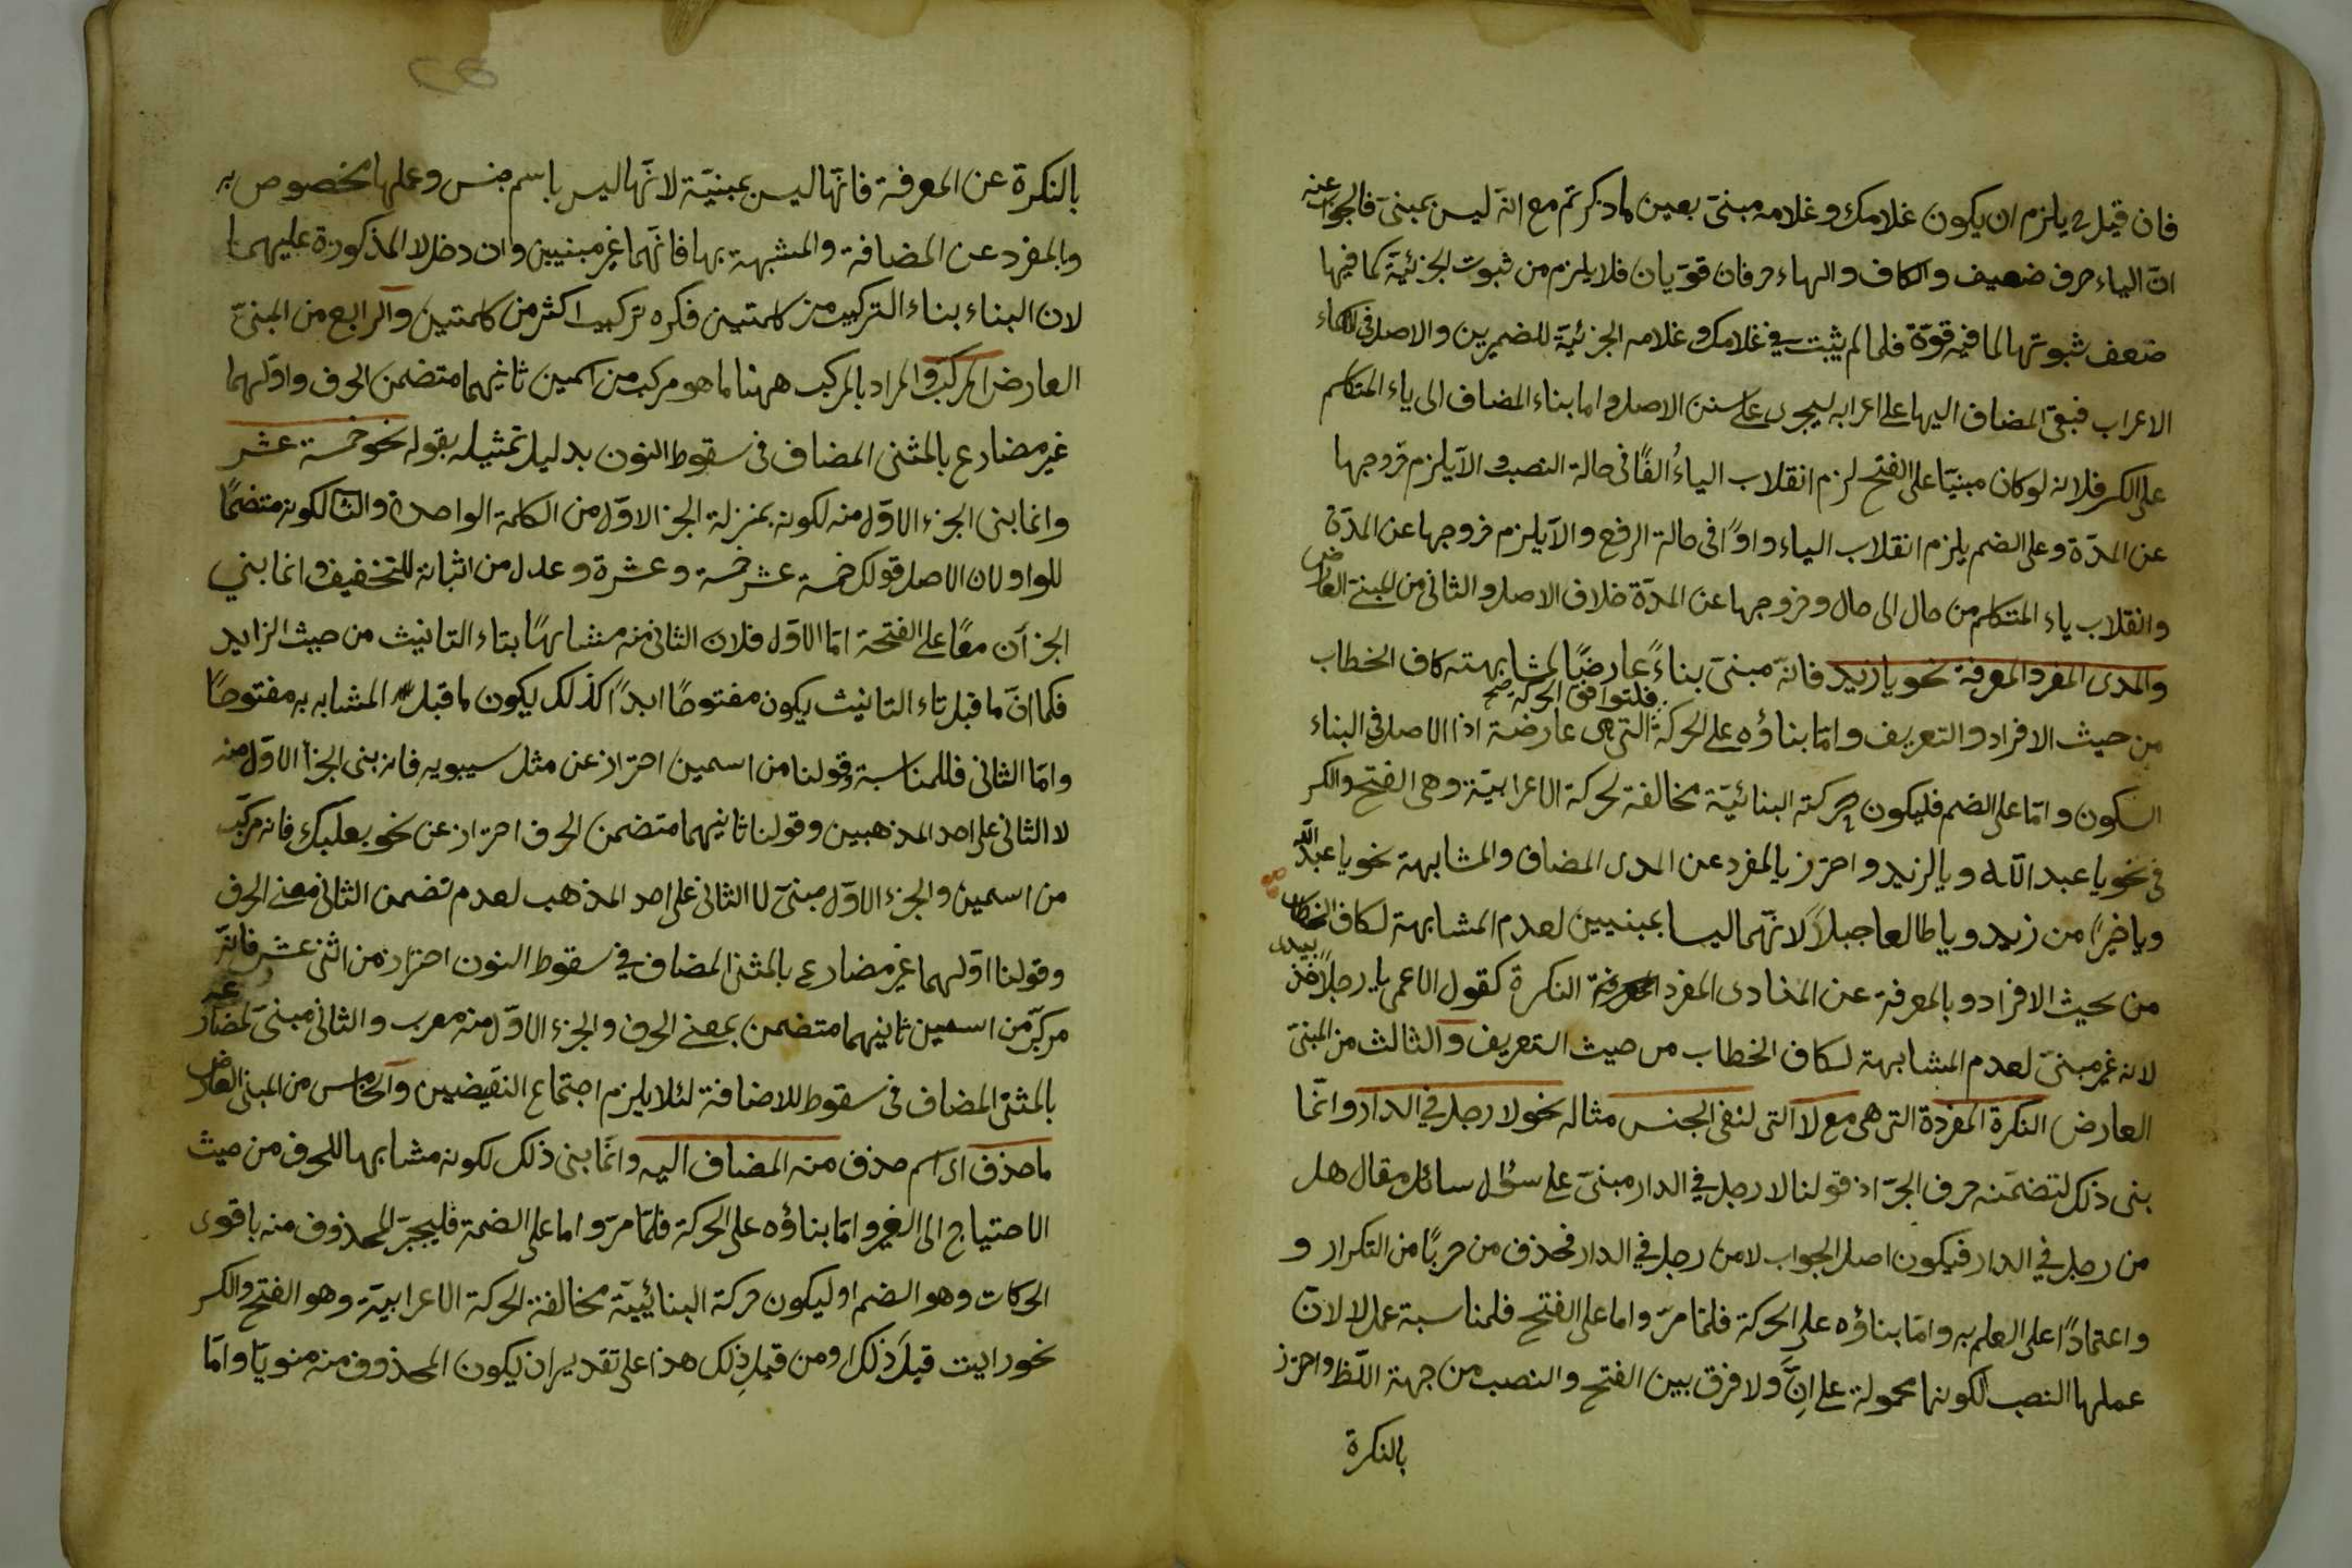 فان قيل فح يلزم ان يكون غلامك وغلامه مبنيّ بعين ما ذكرتم مع انّه ليس بمبنيّ فالجواب عنه
انّ الياء حرف ضعيف والكاف والهاء حرفان قويّان فلا يلزم من ثبوت الجزئيّة كما فيها
ضعف ثبوتها لما فيه قوّة فلما لم يثبت في غلامك وغلامه الجزئيّة للضميرين والاصل في الاسماء
الاعراب فبقى المضاف اليها على اعرابه ليجرى على سنن الاصل واما بناء المضاف الى ياء المتكلم
على الكسر فلانه لو كان مبنيّا على الفتح لزم انقلاب الياءُ الفًا في حالة النصب والاّ يلزم خروجها
عن المدّة وعلى الضم يلزم انقلاب الياء واوًا في حالة الرفع والاّ يلزم خروجها عن المدّة
وانقلاب ياء المتكلم من حال الى حال وخروجها عن المدّة خلاف الاصل والثاني من المبنيّ العارض
والمدى المفرد المعرفة نحو يا زيد فانّه مبنيّ بناءً عارضًا لمشابهته كاف الخطاب
من حيث الافراد والتعريف وامّا بناؤه على الحركة فلتوافق الحركة صح التي هى عارضة اذا الاصل في البناء
السكون وامّا على الضم فليكون حركته البنائيّة مخالفة لحركة الاعرابيّة وهى الفتح والكسر
في نحو يا عبد اللّه ويا لزيد واحترز بالمفرد عن المدى المضاف والمشابهة نحو يا عبد اللّه
ويا خيرًا من زيد ويا طالعا جبلاً لانّهما ليسا بمبنيين لعدم المشابهة لكاف الخطاب
من حيث الافراد وبالمعرفة عن المنادى المفرد النكرة كقول الاعمى يا رجلاً خذ بيدى
لانه غير مبنيّ لعدم المشابهة لكاف الخطاب من حيث التعريف والثالث من المبنيّ
العارض النكرة المفردة التي هى مع لا التي لنفى الجنس مثاله نحو لا رجل في الدار وانّما
بنى ذلك لتضمّنه حرف الجرّ اذ قولنا لا رجل في الدار مبنيّ على سؤال سائل مقال هل
من رجل في الدار فيكون اصل الجواب لا من رجل في الدار فحذف من حربًا من التكرار و
واعتمادًا على العلم به وامّا بناؤه على الحركة فلمّا مرّ واما على الفتح فلمناسبة عمل لا لانّ
عملها النصب لكونها محمولة على انّ ولا فرق بين الفتح والنصب من جهة اللّفظ واحترز
بالنكرة
بالنكرة عن المعرفة فانّها ليس بمبنيّة لانّها ليس باسم جنس وعملها مخصوص به
وبالمفرد عن المضافة والمشبهة بها فانّهما غير مبنيين وان دخل لا المذكورة عليهما
لان البناء بناء التركيب من كلمتين فكره تركيب اكثر من كلمتين والرابع من المبنيّ
العارض المركب والمراد بالمركب ههنا ما هو مركب من اسمين ثانيهما متضمن الحرف واوّلهما
غير مضارع بالمثنى المضاف في سقوط النون بدليل تمثيله بقوله نحو خمسة عشر
وانما بنى الجزء الاوّل منه لكونه بمنزلة الجز الاوّل من الكلمة الواحدة والثا لكونه متضمّا
للواو لان الاصل قولك خمسة عشر خمسة وعشرة وعدل من اثباته للتخفيف وانما بنى
الجزأن معًا على الفتحة امّا الاوّل فلان الثاني منه مشابهًا بتاء التانيث من حيث الزايد
فكما انّ ما قبل تاء التانيث يكون مفتوحًا ابدًا كذلك يكون ما قبل المشابه به مفتوحًا
وامّا الثاني فللمناسبة وقولنا من اسمين احتراز عن مثل سيبويه فانه بنى الجزأ الاوّل منه
لا الثاني على احد المذهبين وقولنا ثانيهما متضمن الحرف احتراز عن نحو بعلبك فانه مركّب
من اسمين والجزء الاوّل مبنيّ لا الثاني على احد المذهب لعدم تضمن الثاني معنى الحرف
وقولنا اوّلهما غير مضارع بالمثنى المضاف في سقوط النون احتراز من اثنى عشر فانّه
مركّب من اسمين ثانيهما متضمن بمعنى الحرف والجزء الاوّل منه معرب والثاني مبنيّ لمضارعته
بالمثنى المضاف في سقوط للاضافة لئلا يلزم اجتماع النقيضين والخامس من المبنى العارض
ما حذف اى اسم حذف منه المضاف اليه وانّما بنى ذلك لكونه مشابها للحرف من حيث
الاحتياج الى الغير وامّا بناؤه على الحركة فلمّا مرّ واما على الضمة فليجبر المحذوف منه باقوى
الحركات وهو الضم او ليكون حركة البنائيّية مخالفة لحركة الاعرابيّة وهو الفتح والكسر
نحو رايت قبلَ ذلك او من قبلِ ذلك هذا على تقدير ان يكون المحذوف منه منويّا وامّا